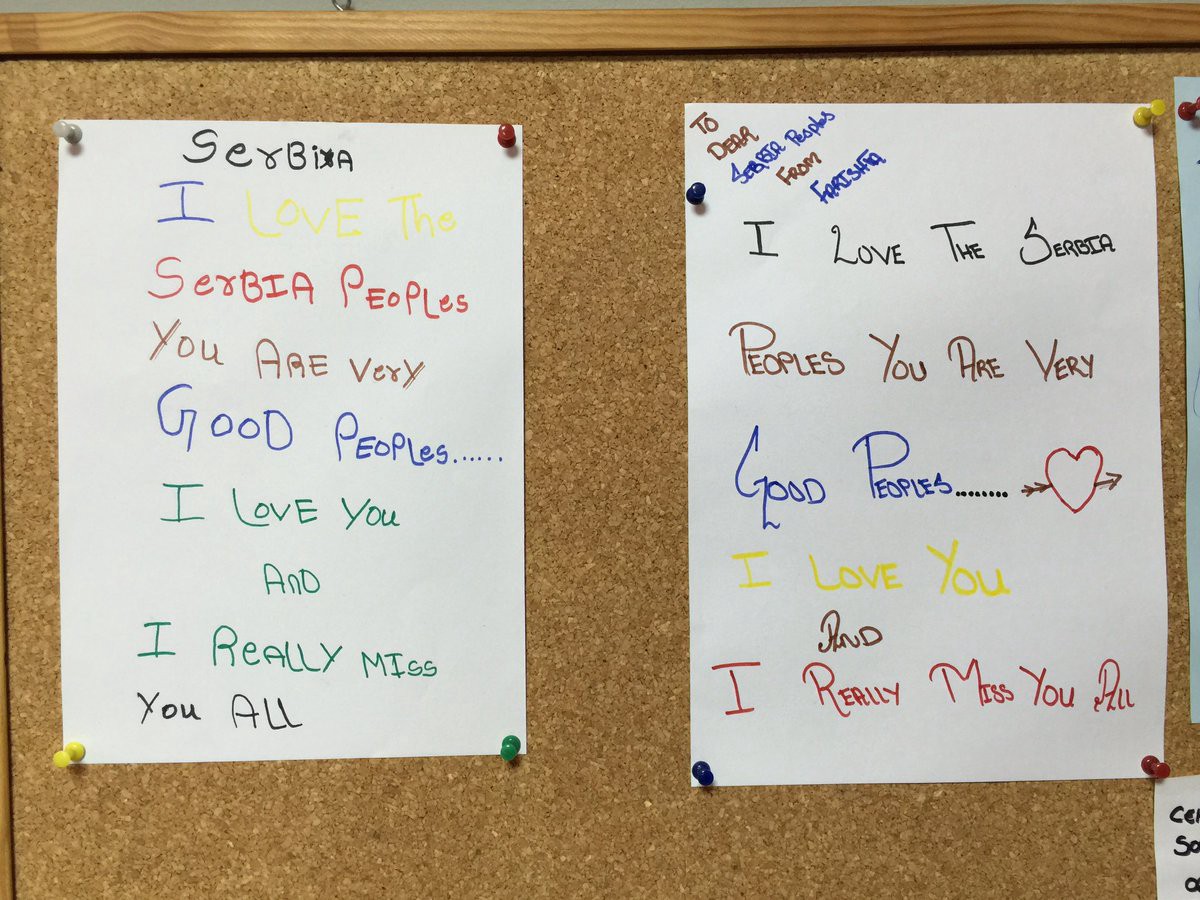 SerBiA
I LOVE The
SerBIA PEOPLes
You ARE Very
GOOD PEOPLes......
I LOVE You
AnD
I ReALLY MISs
You ALL
TO
DEAR
SERBIA Peoples
FROM
FARISHTA
I LOVE THE SERBIA
PEOPLES YOU ARE VERY
GOOD PEOPLES........
I LOVE YOU
AND
I REALLY MISS YOU ALL